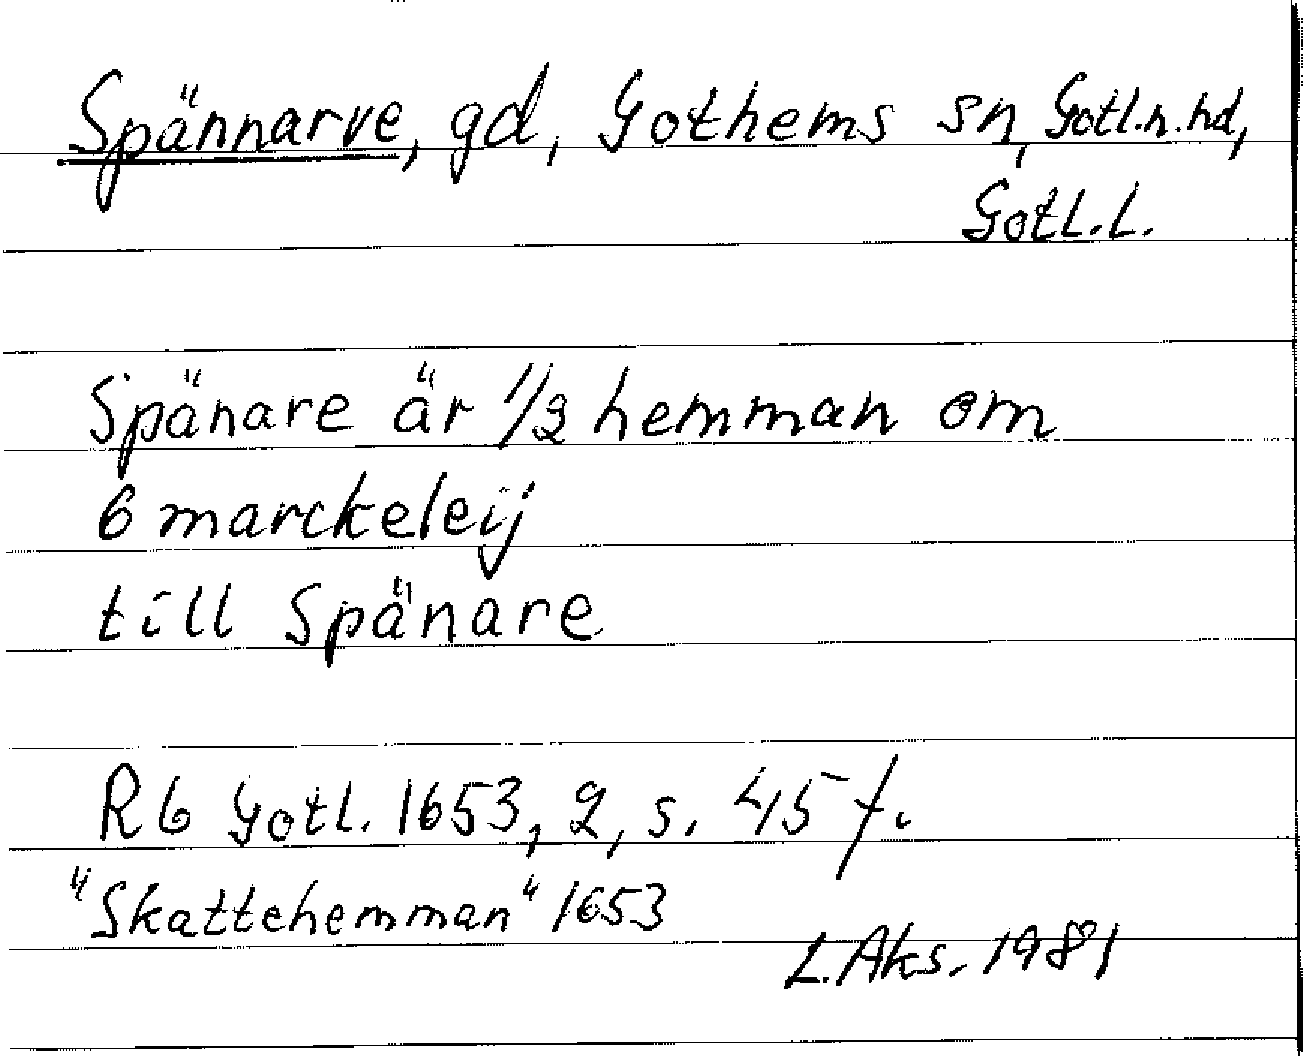 Spännarve, gd, Gothems sn, Gotl.n.hd,
Gotl.l.
Spänare är 1/2 hemman om
6 marckeleij
till Spänare
Rb Gotl. 1653, 2, s. 45 f.
"Skattehemman" 1653
L.Aks. 1981